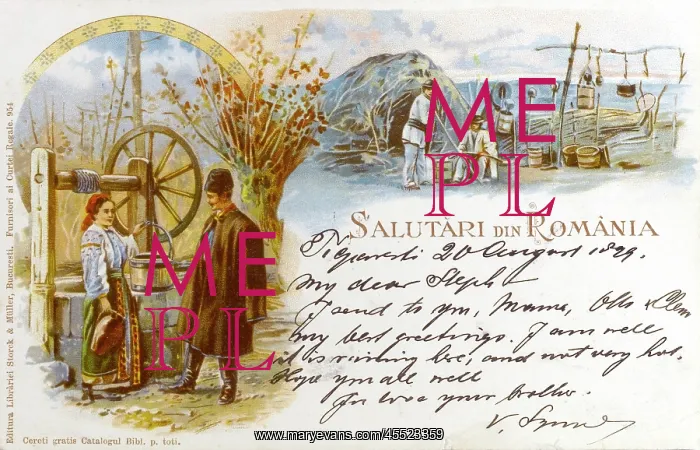 Editura Librăriei Storck & Müller, Bucuresti, Furnisori ai Curtei Regale. 954
SALUTĂRI DIN ROMÂNIA
20 August 1899.
My dear Steph
I send to you, Mama, &
my best greetings. I am well
it is raining here, and not very hot.
Hope you all well
your brother.
V.
Cereti gratis Catalogul Bibl. p. toti.
ME
PL
ME
PL
www.maryevans.com/45529359